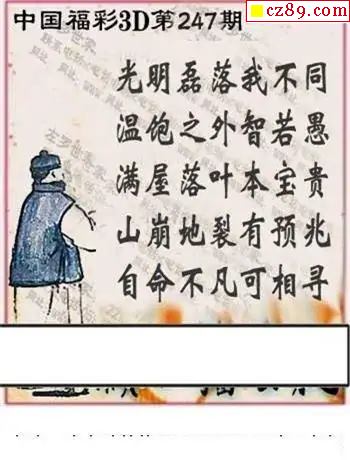 cz89.com
中国福彩3D第247期
光明磊落我不同
温饱之外智若愚
满屋落叶本宝贵
山崩地裂有预兆
自命不凡可相寻